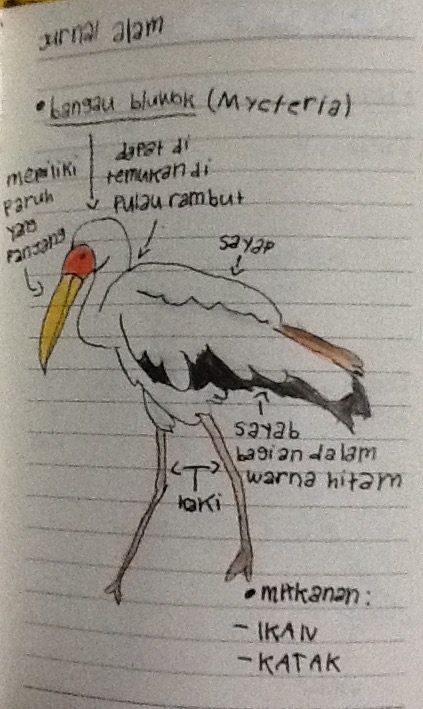 Jurnal alam
• bangau bluwok (Mycteria)
memiliki
Paruh
yang
Panjang
dapat di
temukan di
Pulau rambut
sayap
sayab
bagian dalam
warna hitam
kaki
• makanan:
- IKAN
- KATAK